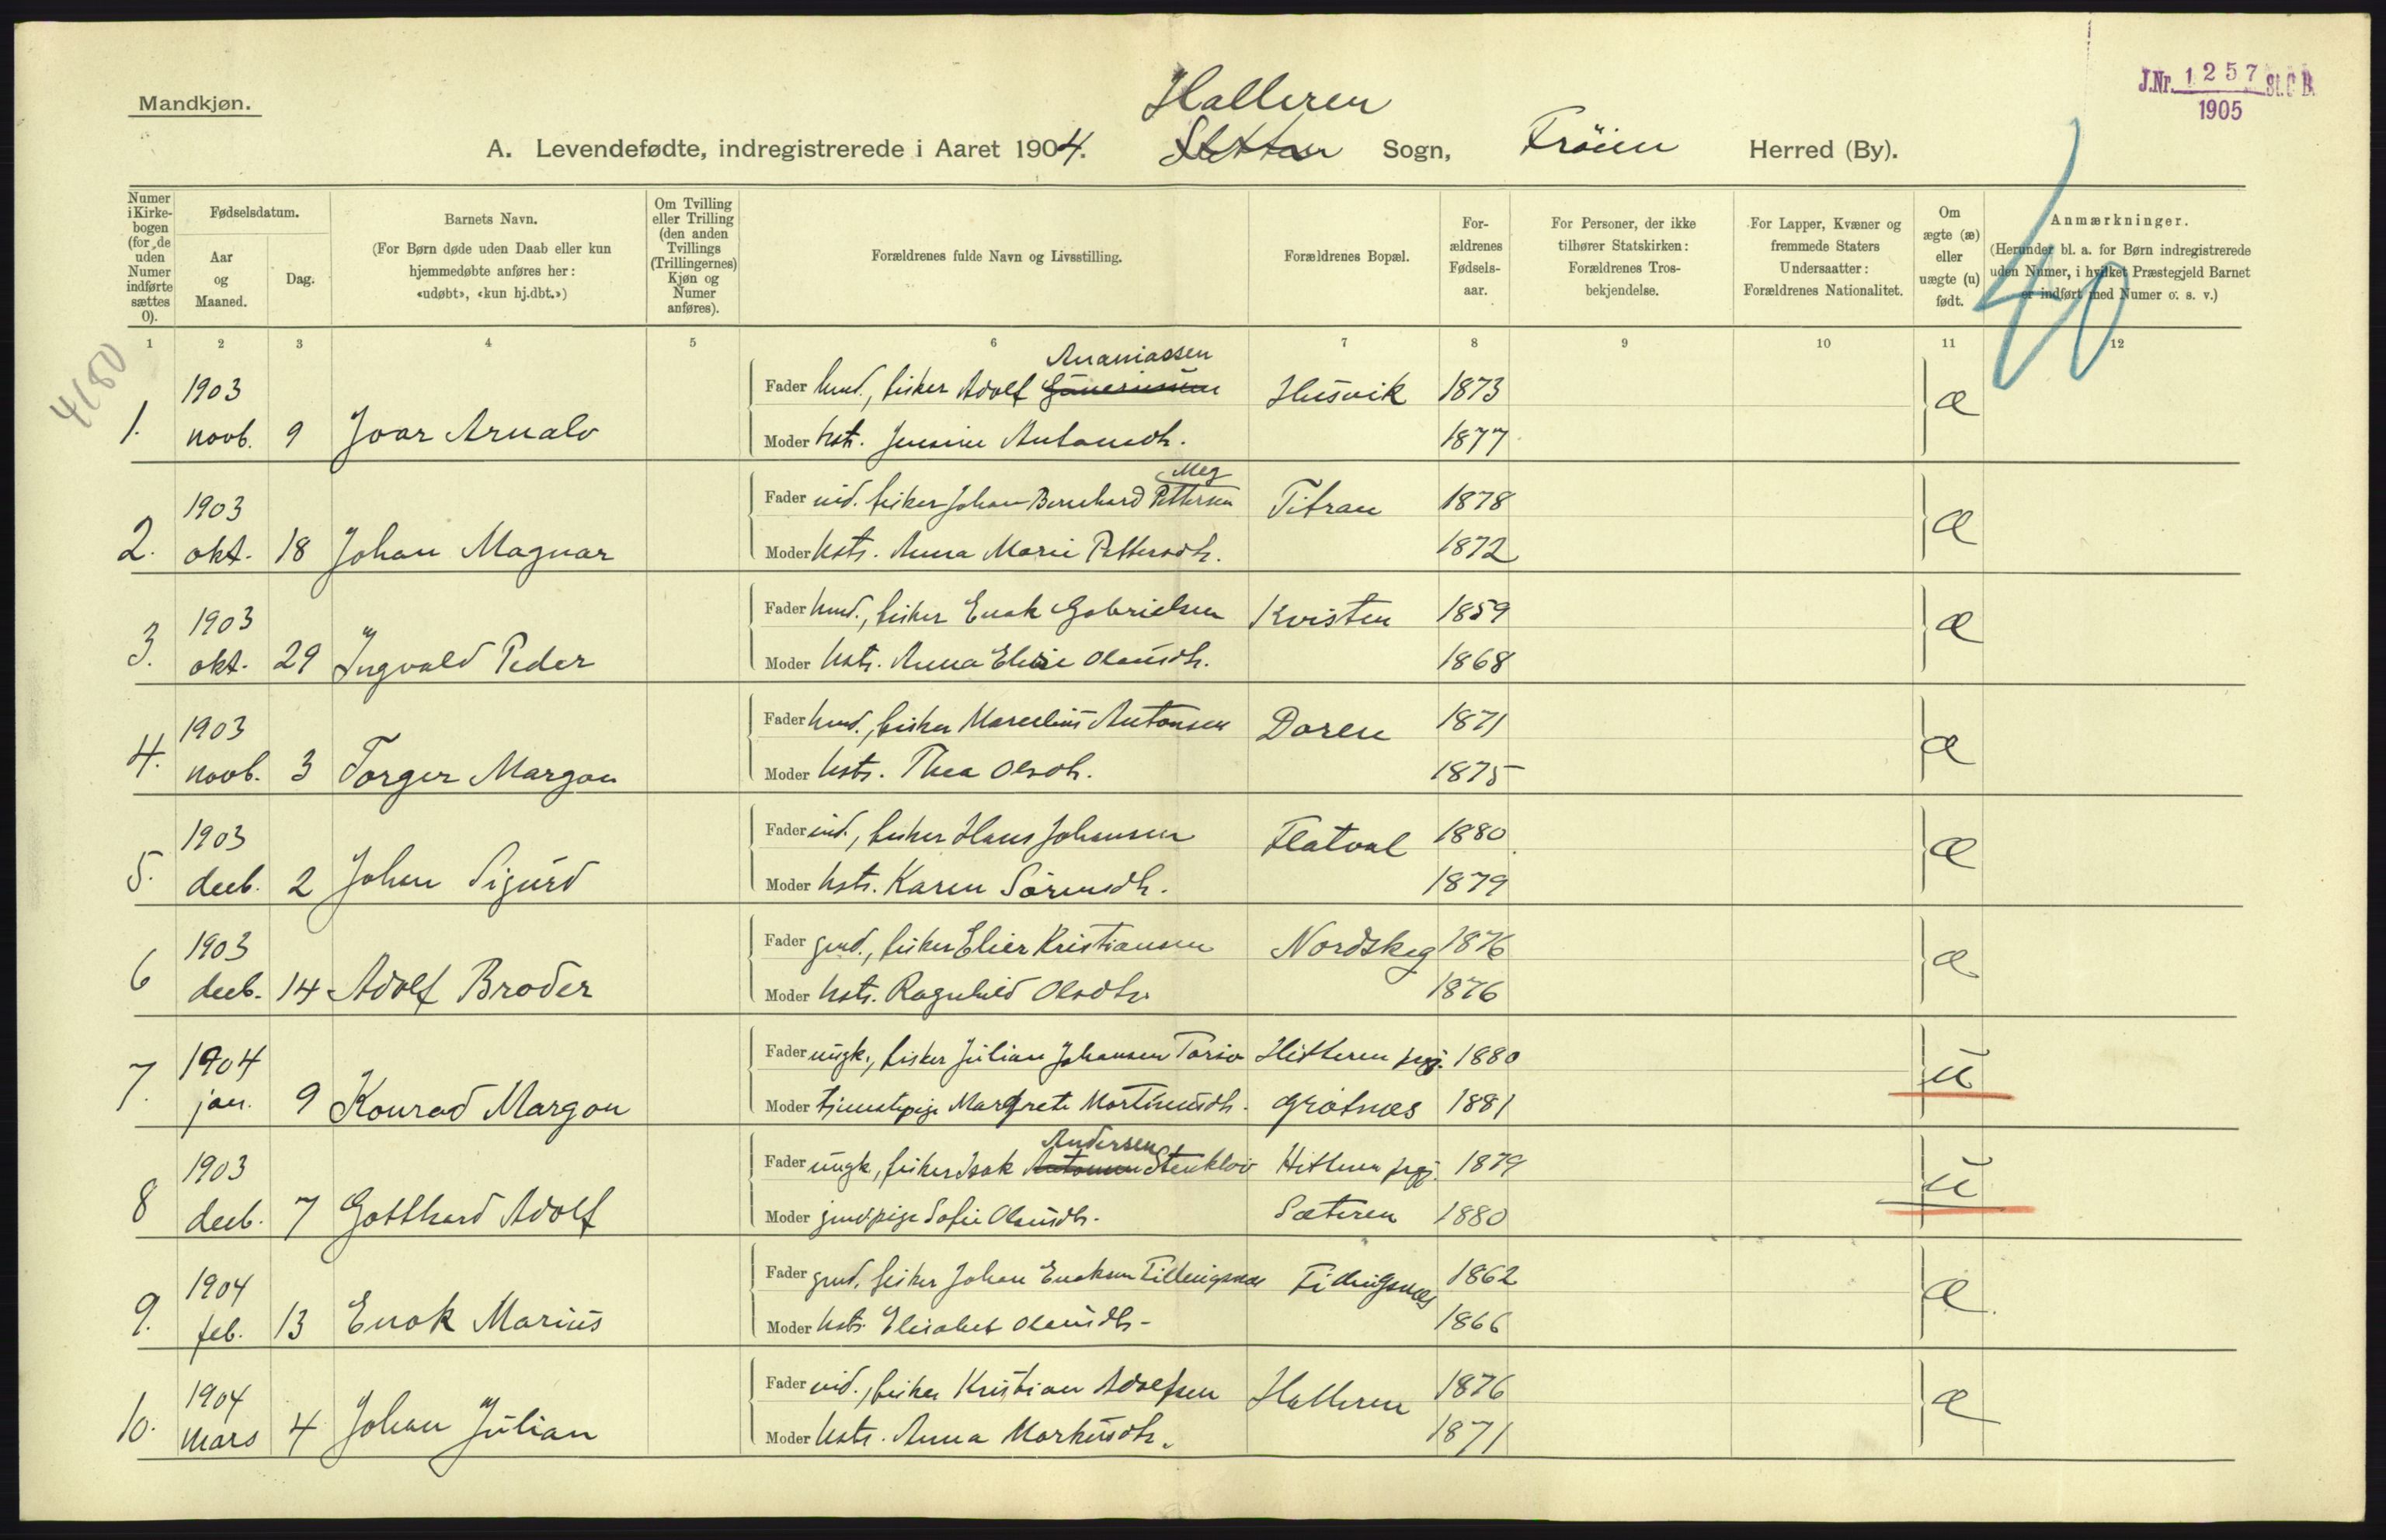 Mandkjøn.
J.Nr. 1257 St.C B.
1905
Halleren
A. Levendefødte, indregistrerede i Aaret 1904. Sletta Sogn, Frøien Herred (By).
Numer i Kirkebogen (for de uden Numer indførte sættes 0).
Fødselsdatum.
Aar og Maaned.
Dag.
Barnets Navn.
(For Børn døde uden Daab eller kun hjemmedøbte anføres her: «udøbt», «kun hj.dbt.»)
Om Tvilling eller Trilling (den anden Tvillings (Trillingernes) Kjøn og Numer anføres).
Forældrenes fulde Navn og Livsstilling.
Forældrenes Bopæl.
Forældrenes Fødselsaar.
For Personer, der ikke tilhører Statskirken: Forældrenes Trosbekjendelse.
For Lapper, Kvæner og fremmede Staters Undersaatter: Forældrenes Nationalitet.
Om ægte (æ) eller uægte (u) født.
Anmærkninger.
(Herunder bl. a. for Børn indregistrerede uden Numer, i hvilket Præstegjeld Barnet er indført med Numer o. s. v.)
40
1 2 3 4 5 6 7 8 9 10 11 12
4180
Ananiassen
1903 Fader husm., fisker Adolf Husvik 1873 æ
1. novb. 9 Joar Arnalv Moder hstr. Jensine Antonsdtr. 1877
Meg
1903 Fader ind. fisker Johan Bernhard Pettersen Titran 1878 æ
2. okt. 18 Johan Magnar Moder hstr. Anna Marie Pettersdtr. 1872
1903 Fader husm., fisker Enok Gabrielsen Kvisten 1859 æ
3. okt. 29 Ingvald Peder Moder hstr. Anna Elisie Olausdtr. 1868
1903 Fader husm., fisker Marselius Antonsen Daren 1871 æ
4. novb. 3 Torger Margon Moder hstr. Thea Olsdtr. 1875
1903 Fader ind., fisker Hans Johansen Flatval 1880 æ
5. decb. 2 Johan Sigurd Moder hstr. Karen Sörensdtr. 1879
1903 Fader grd., fisker Elier Kristiansen Nordskag 1876 æ
6 decb. 14 Adolf Broder Moder hstr. Ragnhild Olsdtr. 1876
1904 Fader ungk., fisker Julian Johansen Hitteren prgj. 1880 u
7. jan. 9 Konrad Margon Moder tjenestepige Margrete Martinusdtr. Grötnæs 1881
Andersen
1903 Fader ungk., fisker Isak Antonsen Stenkløv Hitteren prgj. 1879 u
8 decb. 7 Gotthard Adolf Moder grdpige Sofie Olausdtr. Sæteren 1880
1904 Fader grd. fisker Johan Enoksen Fillingsnæs Fillingsnæs 1862 æ
9. feb. 13 Enok Marius Moder hstr. Elisabet Olausdtr. 1866
1904 Fader ind., fisker Kristian Adolfsen Halleren 1876 æ
10. mars 4 Johan Julian Moder hstr. Anna Markusdtr. 1871